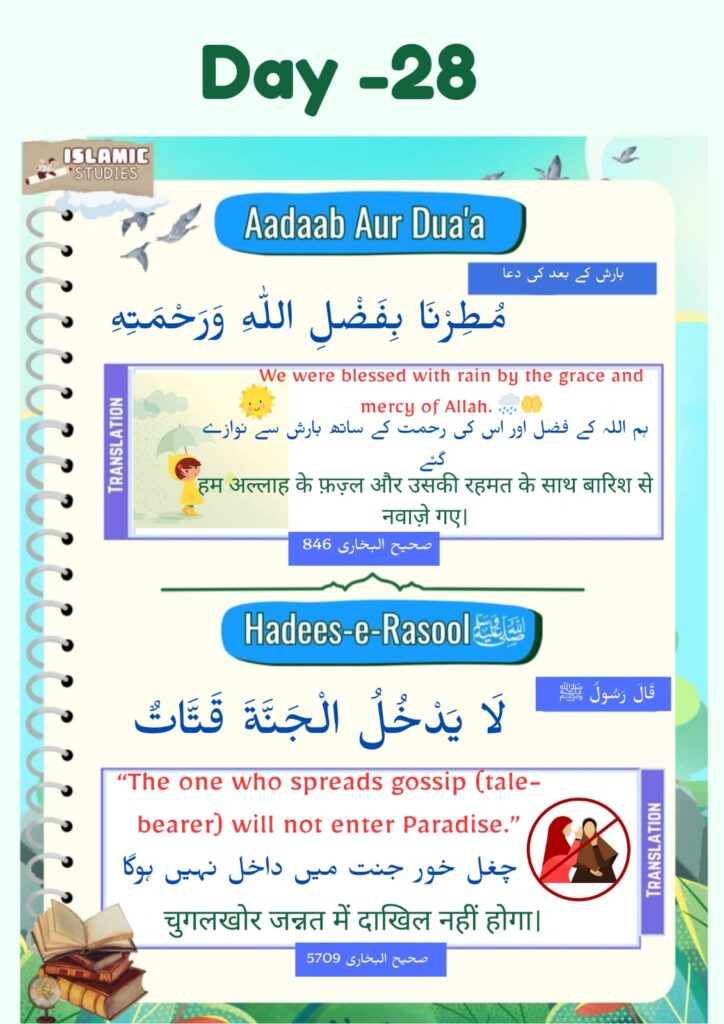 Day -28
ISLAMIC
STUDIES
Aadaab Aur Dua'a
بارش کے بعد کی دعا
مُطِرْنَا بِفَضْلِ اللّٰهِ وَرَحْمَتِهِ
TRANSLATION
We were blessed with rain by the grace and
mercy of Allah. 🌧️🤲
ہم اللہ کے فضل اور اس کی رحمت کے ساتھ بارش سے نوازے
گئے
हम अल्लाह के फ़ज़्ल और उसकी रहमत के साथ बारिश से
नवाज़े गए।
صحیح البخاری 846
Hadees-e-Rasool ﷺ
قَالَ رَسُولُ ﷺ
لَا يَدْخُلُ الْجَنَّةَ قَتَّاتٌ
“The one who spreads gossip (tale-
bearer) will not enter Paradise.”
چغل خور جنت میں داخل نہیں ہوگا
चुगलखोर जन्नत में दाखिल नहीं होगा।
TRANSLATION
صحیح البخاری 5709